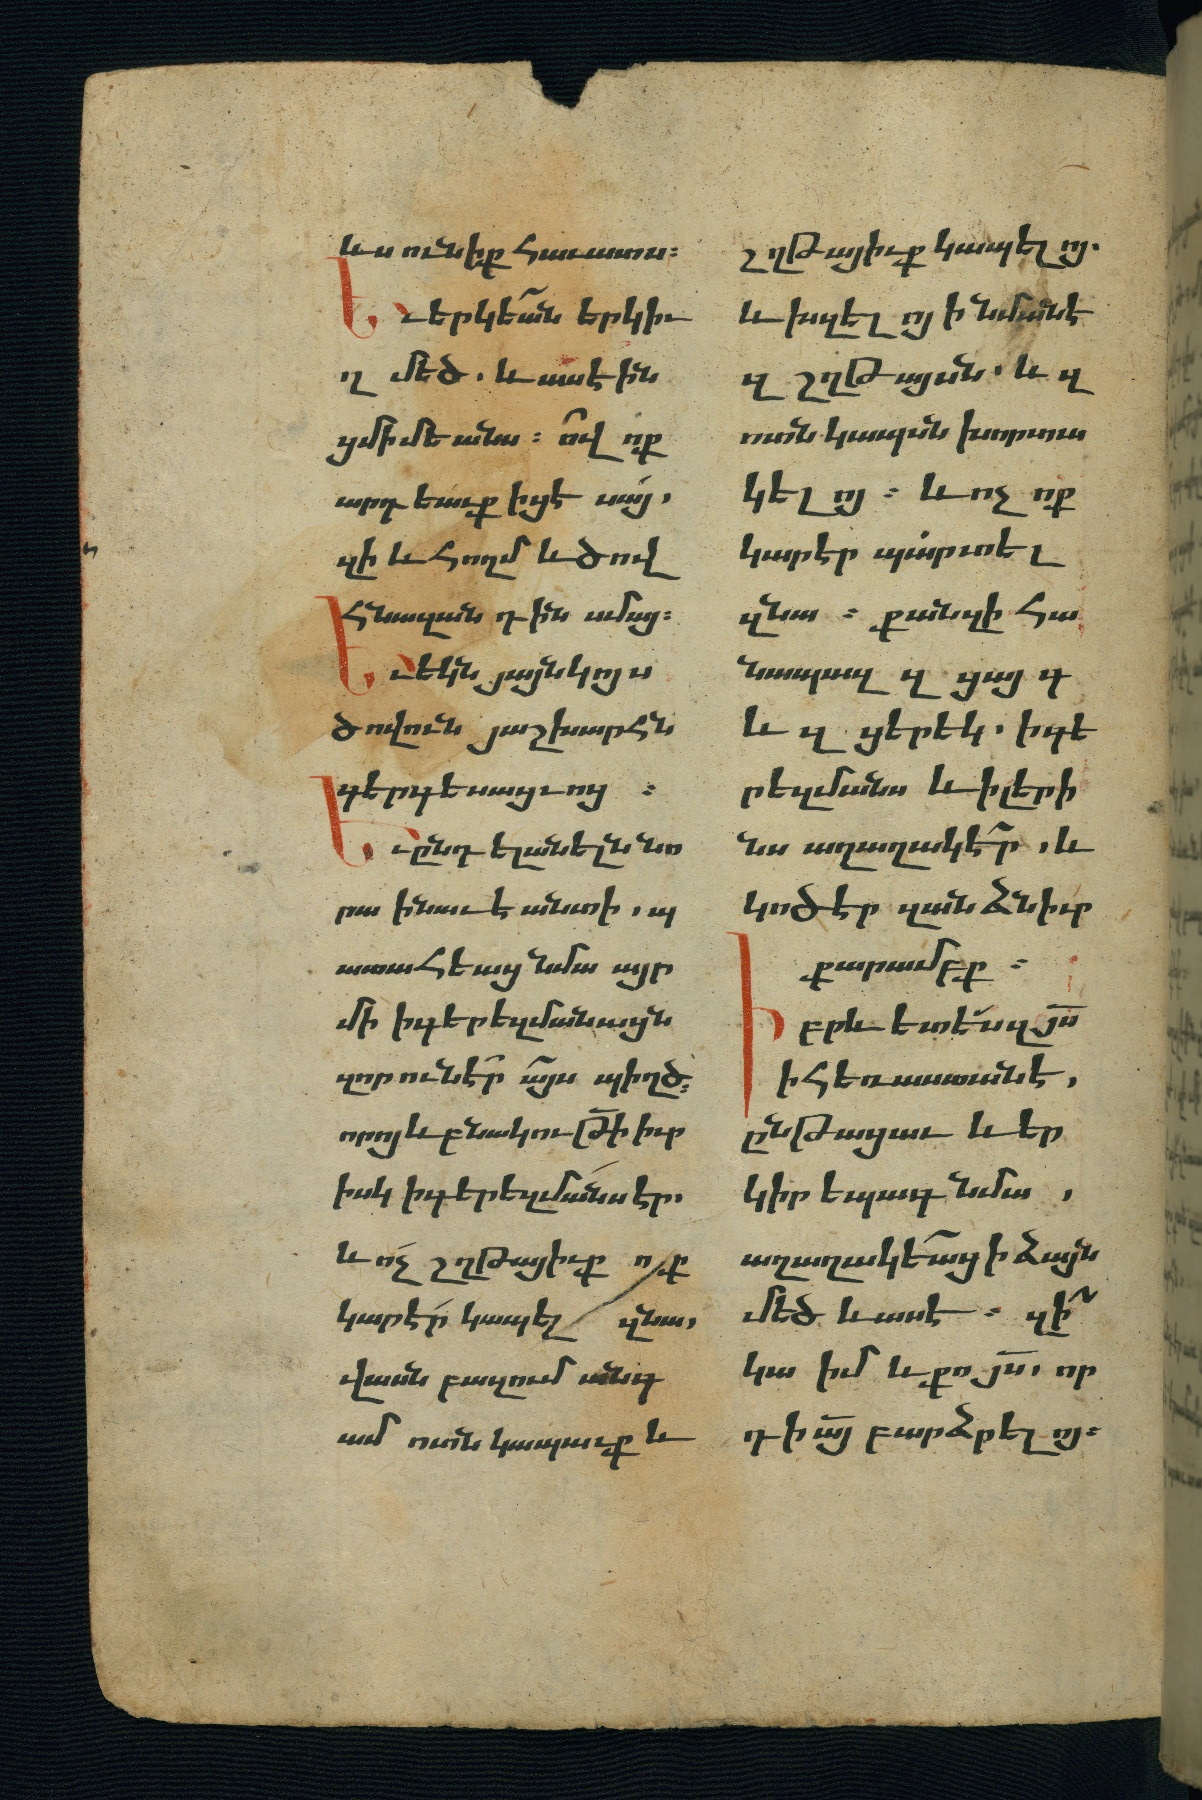 ևս ունիք հաւատս։
Եւ երկեա՜ն երկիւ
ղ մեծ. և ասէին
ցմիմեանս։ ո՞վ ոք
արդեաւք իցէ սա՛յ,
զի և հողմ և ծով
հնազանդին սմայ։
Եւ եկն յայնկոյս
ծովուն յաշխարհն
գերգեսացւոց ։
Եւ ընդ ելանելն նո
րա ինաւէ անտի, պ
ատահեաց նմա այր
մի իգերեզմանացն
զոր ունէր այս պիղծ։
որոյ և բնակութի իւր
իսկ իգերեզմանս էր.
և ո՛չ շղթայիւք ոք
կարէր կապել զնա,
վասն բազում անգ
ամ ոտն կապաւք և
շղթայիւք կապելոյ.
և խզելոյ ի նմանէ
զ շղթայսն. և զ
ոտն կապսն խորտա
կելոյ ։ և ոչ ոք
կարէր պարտել
զնա ։ քանզի հա
նապազ զ ցայգ
և զ ցերեկ. իգե
րեզմանս և իլերի
նս աղաղակէր, և
կոծէր զանձնիւր
քարամբք ։
Իբրև ետես զյս
ի հեռաստանէ,
ընթացաւ և եր
կիր եպագ նմա ,
աղաղակեաց ի ձայն
մեծ և ասէ ։ զի՞
կա իմ և քո յս, որ
դի այ բարձրելոյ։